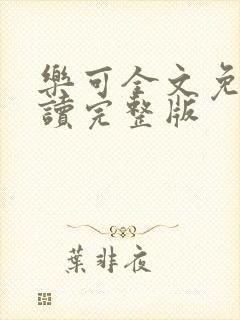 樂可全文免
讀完整版
葉非夜